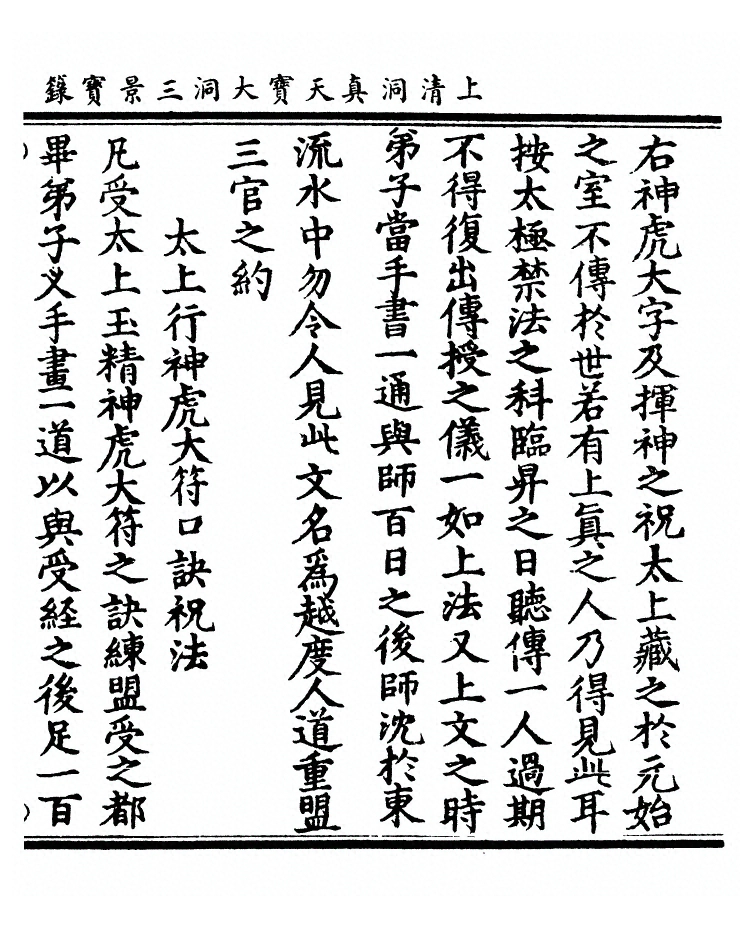 上清洞真天寶大洞三景寶籙
右神虎大字及揮神之祝太上藏之於元始
之室不傳於世若有上眞之人乃得見此耳
按太極禁法之科臨昇之日聽傳一人過期
不得復出傳授之儀一如上法又上文之時
弟子當手書一通與師百日之後師沈於東
流水中勿令人見此文名爲越度人道重盟
三官之約
太上行神虎大符口訣祝法
凡受太上玉精神虎大符之訣練盟受之都
畢弟子义手畫一道以與受経之後足一百